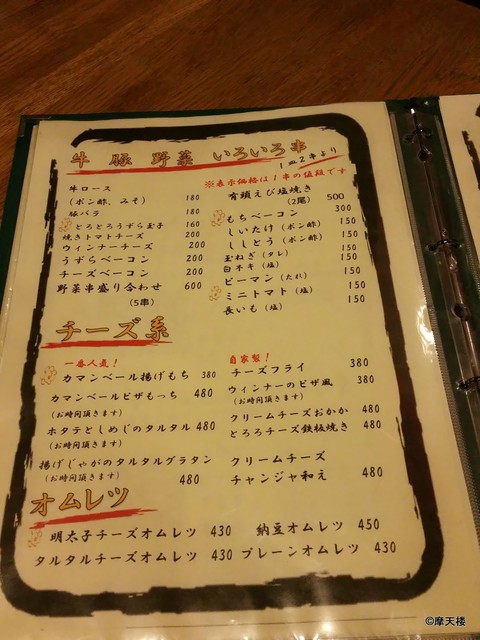 牛 豚 野菜 いろいろ串
1皿2串より
※表示価格は1串の値段です
牛ロース
(ポン酢、みそ) 180
豚バラ 180
とろとろうずら玉子 160
焼きトマトチーズ 200
ウィンナーチーズ 200
うずらベーコン 200
チーズベーコン 200
野菜串盛り合わせ 600
(5串)
有頭えび塩焼き
(2尾) 500
もちベーコン 300
しいたけ (ポン酢) 150
ししとう (ポン酢) 150
玉ねぎ (タレ) 150
白ネギ (塩) 150
ピーマン (たれ) 150
ミニトマト (塩) 150
長いも (塩) 150
チーズ系
一番人気!
カマンベール揚げもち 380
カマンベールピザもっち 480
(お時間頂きます)
ホタテとしめじのタルタル 480
(お時間頂きます)
揚げじゃがのタルタルグラタン
(お時間頂きます) 480
自家製!
チーズフライ 380
ウィンナーのピザ風 380
(お時間頂きます)
クリームチーズおかか 480
とろろチーズ鉄板焼き 480
クリームチーズ
チャンジャ和え 480
オムレツ
明太子チーズオムレツ 430 納豆オムレツ 450
タルタルチーズオムレツ 430 プレーンオムレツ 430
©摩天楼